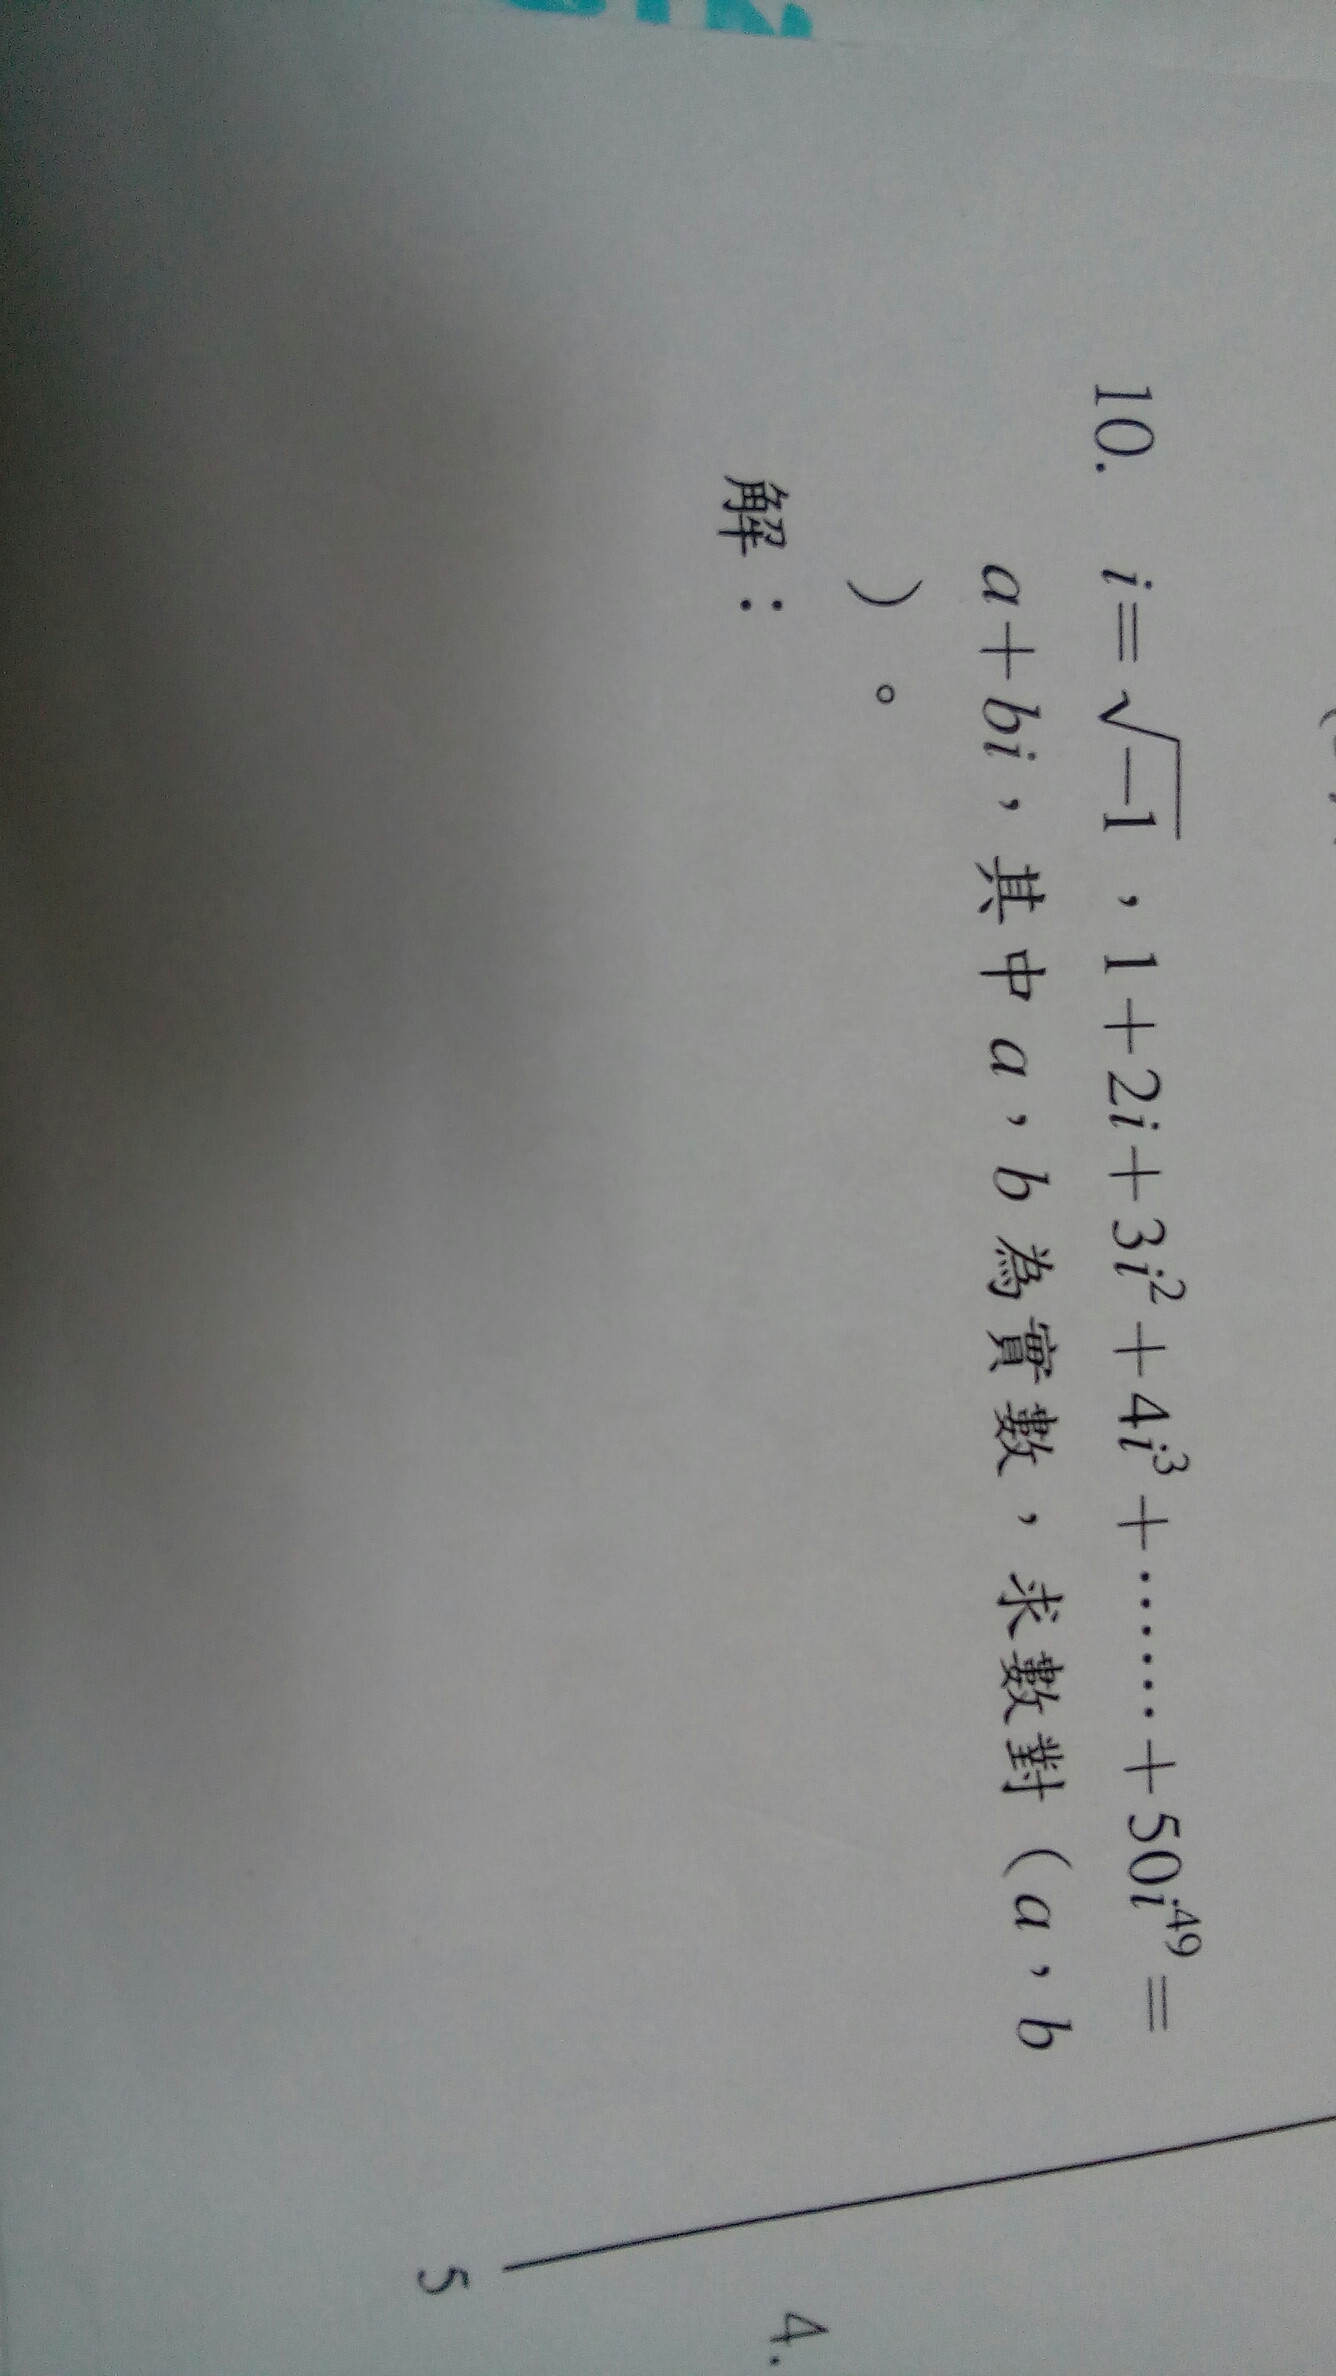 10. i=√−1，1+2i+3i²+4i³+……+50i⁴⁹=
a+bi，其中a，b為實數，求數對(a，b
)。
解：
4.
5